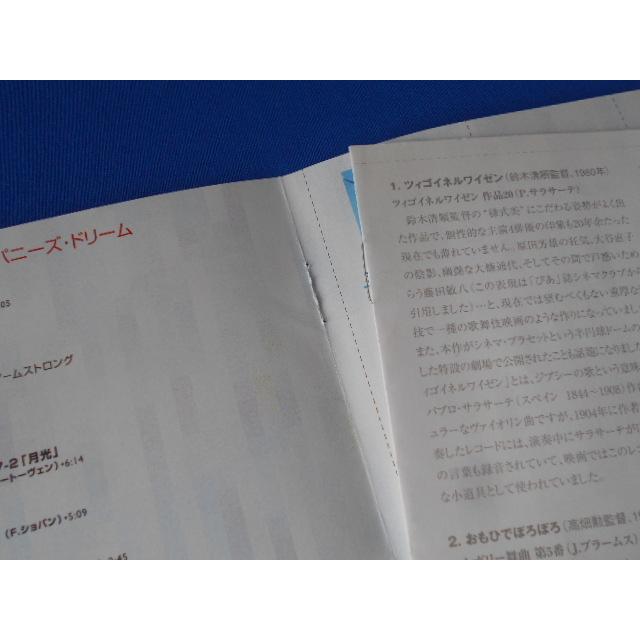 パニーズ・ドリーム
05
アームストロング
7-2「月光」
ートーヴェン)・6:14
(F.ショパン)・5:09
3:45
1. ツィゴイネルワイゼン(鈴木清順監督、1980年)
ツィゴイネルワイゼン 作品20(P.サラサーテ)
鈴木清順監督の“様式美”にこだわる姿勢がよく出
た作品で、個性的な主演4俳優の印象も20年余たった
現在でも薄れていません。原田芳雄の狂気、大谷直子
の陰影、幽鬱な大楠道代、そしてその間で戸惑いため
らう藤田敏八(この表現は「ぴあ」誌シネマクラブか
引用しました)…と、現在では望むべくもない重厚な
技で一種の歌舞伎映画のような作りになっていまし
また、本作がシネマ・プラセットという半円球ドームの
した特設の劇場で公開されたことも話題になりました
ィゴイネルワイゼン」とは、ジプシーの歌という意味
パブロ・サラサーテ(スペイン 1844〜1908)作
ュラーなヴァイオリン曲ですが、1904年に作者
奏したレコードには、演奏中にサラサーテが
の言葉も録音されていて、映画ではこのレコ
な小道具として使われていました。
2. おもひでぽろぽろ(高畑勲監督、1
ンガリー舞曲 第5番(J.ブラームス)